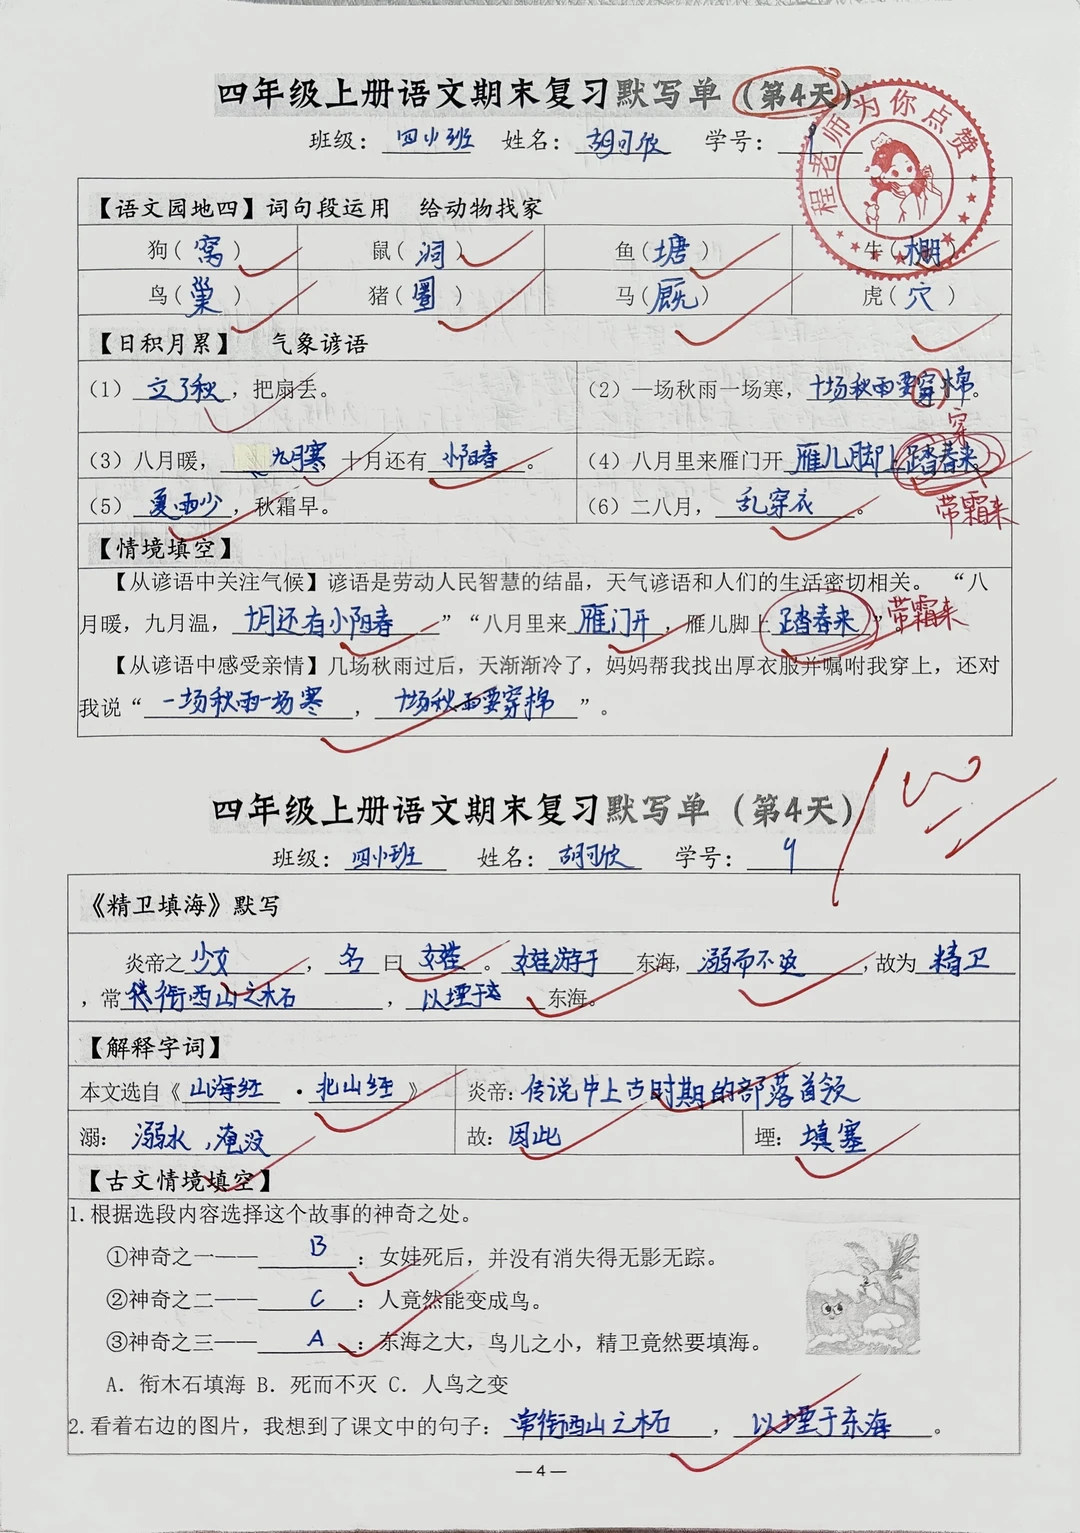 四年级上册语文期末复习默写单（第4天）
班级：四小班 姓名：胡可欣 学号：9
程老师为你点赞
【语文园地四】词句段运用 给动物找家
狗（窝） 鼠（洞） 鱼（塘） 牛（棚）
鸟（巢） 猪（圈） 马（厩） 虎（穴）
【日积月累】 气象谚语
（1）立了秋，把扇丢。 （2）一场秋雨一场寒，十场秋雨要穿棉。
穿
（3）八月暖，九月寒，十月还有小阳春。 （4）八月里来雁门开，雁儿脚上踏春来。
带霜来
（5）夏雨少，秋霜早。 （6）二八月，乱穿衣。
【情境填空】
【从谚语中关注气候】谚语是劳动人民智慧的结晶，天气谚语和人们的生活密切相关。 “八
月暖，九月温，十月还有小阳春”“八月里来雁门开，雁儿脚上踏春来”。带霜来
【从谚语中感受亲情】几场秋雨过后，天渐渐冷了，妈妈帮我找出厚衣服并嘱咐我穿上，还对
我说“一场秋雨一场寒，十场秋雨要穿棉”。
100
四年级上册语文期末复习默写单（第4天）
班级：四小班 姓名：胡可欣 学号：9
《精卫填海》默写
炎帝之少女，名曰女娃。女娃游于东海，溺而不返，故为精卫
，常衔西山之木石，以堙于东海。
【解释字词】
本文选自《山海经·北山经》 炎帝：传说中上古时期的部落首领
溺：溺水，淹没 故：因此 堙：填塞
【古文情境填空】
1.根据选段内容选择这个故事的神奇之处。
①神奇之一——B：女娃死后，并没有消失得无影无踪。
②神奇之二——C：人竟然能变成鸟。
③神奇之三——A：东海之大，鸟儿之小，精卫竟然要填海。
A．衔木石填海 B．死而不灭 C．人鸟之变
2.看着右边的图片，我想到了课文中的句子：常衔西山之木石，以堙于东海。
—4—